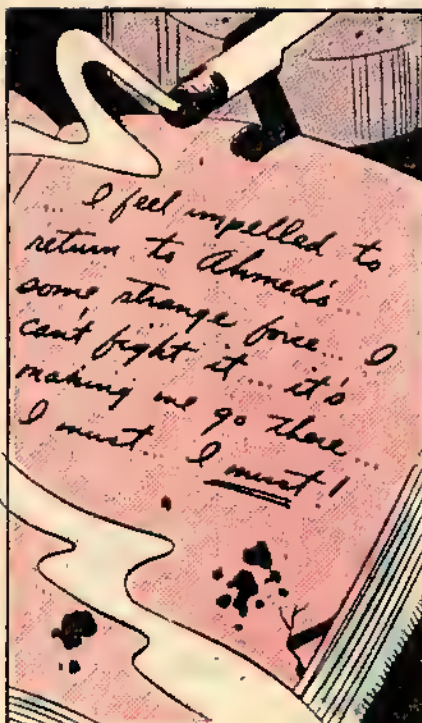 ... I feel impelled to
return to Ahmed's...
some strange force... I
can't fight it... it's
making me go there...
I must... I must!